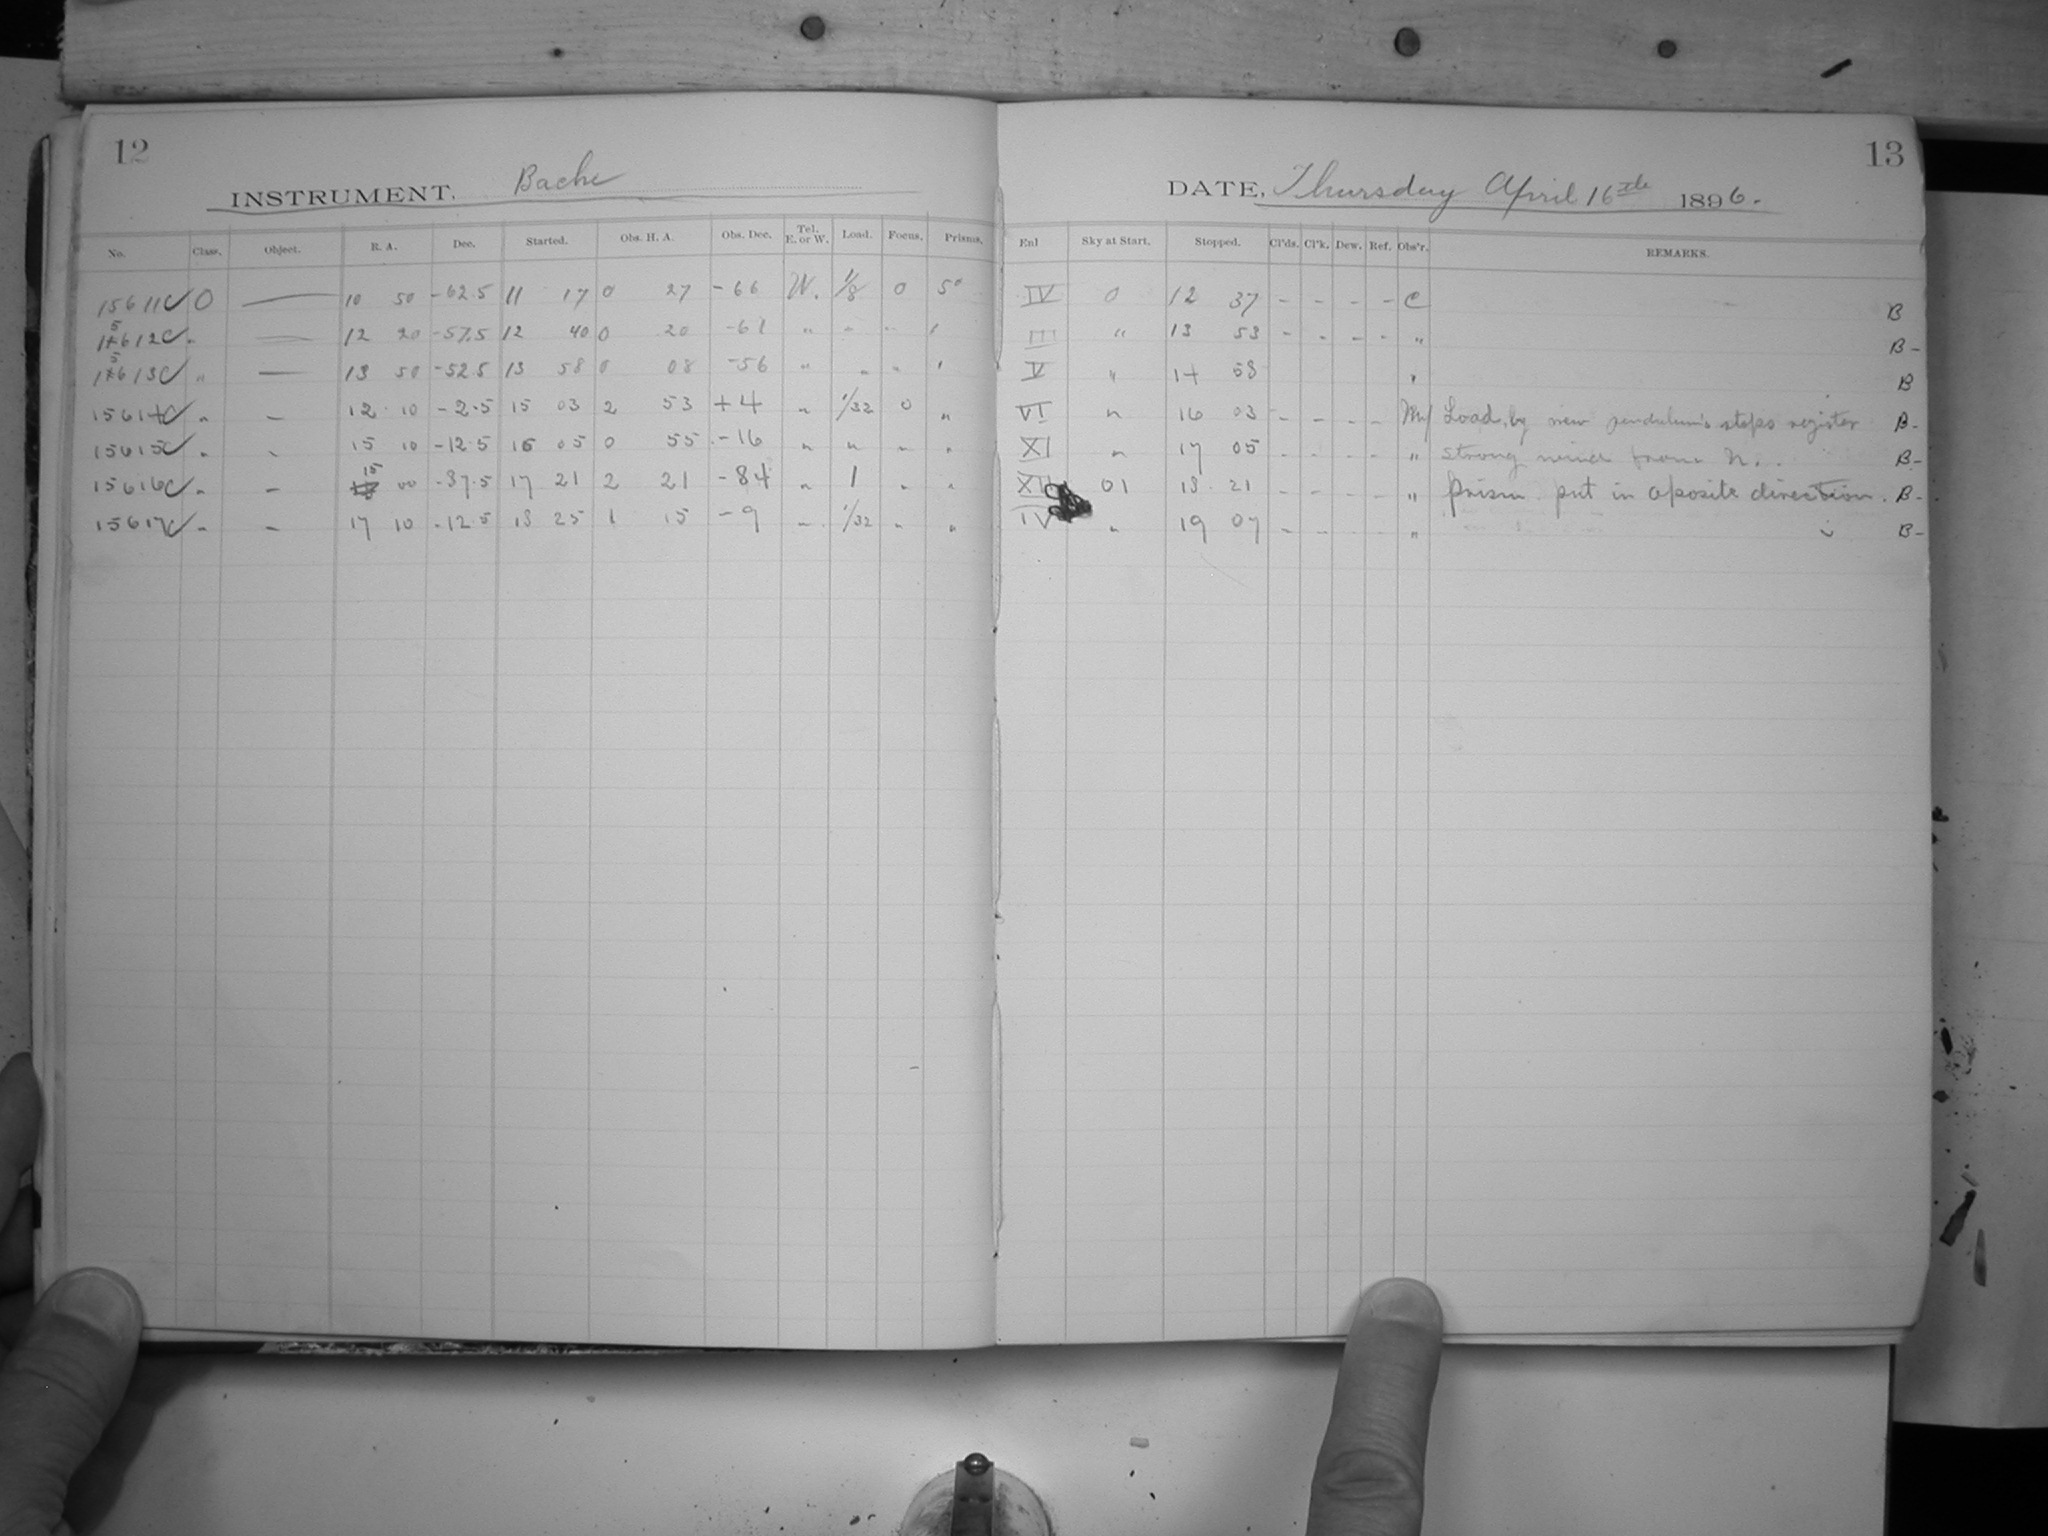 12
INSTRUMENT. Bache
No. Class. Object. R. A. Dec. Started. Obs. H. A. Obs. Dec. Tel. E. or W. Load. Focus. Prisms.
15611 C O — 10 50 -62.5 11 17 0 27 -66 W. 1/8 0 5°
15612 C " — 12 20 -57.5 12 40 0 20 -61 " " " "
15613 C " — 13 50 -52.5 13 58 0 08 -56 " " " "
15614 C " — 12 10 -2.5 15 03 2 53 +4 " 1/32 0 "
15615 C " " 15 10 -12.5 16 05 0 55 -16 " " " "
15616 C " — 15 00 -37.5 17 21 2 21 -84 " 1 " "
15617 C " — 17 10 -12.5 18 25 1 15 -9 " 1/32 " "
13
DATE, Thursday April 16th 1896.
Enl Sky at Start. Stopped. Cl'ds. Cl'k. Dew. Ref. Obs'r. REMARKS.
IV 0 12 37 - - - - C B
III " 13 53 - - - - " B-
V " 14 58 " B
VI " 16 03 - - - - Load by new pendulum's stops register B-
XI " 17 05 - - - - " strong wind from N. B-
01 18 21 - - - - " Prism put in oposite direction. B-
IV " 19 07 - - - - " B-